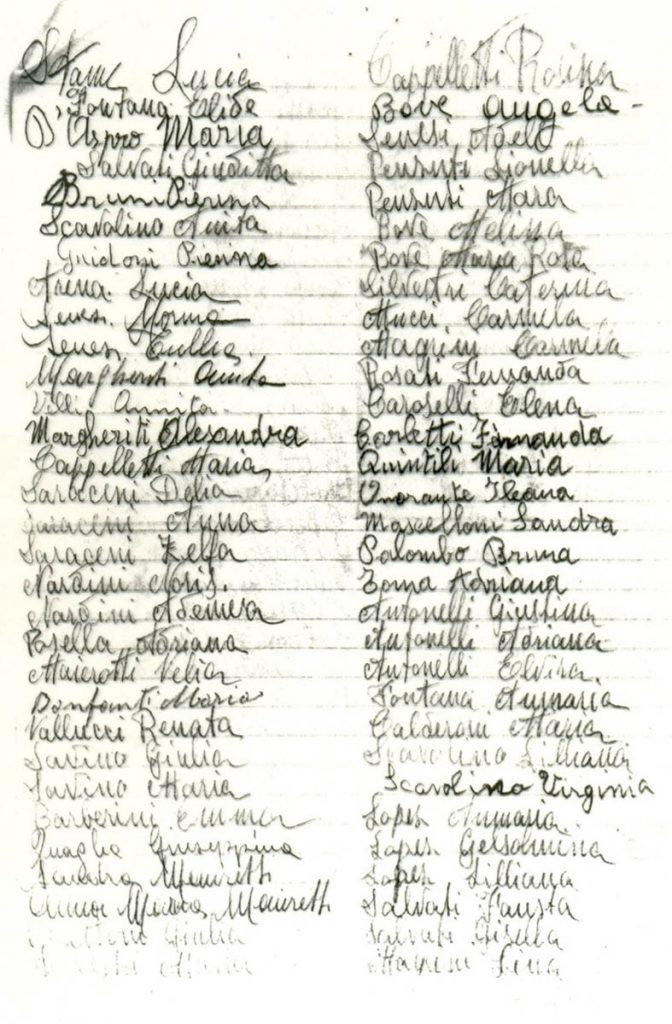 Lucia
Fontana Elide
D'Aspro Maria
Salvati Giuditta
Bruni Pierina
Scavolino Anita
Guidoni Pierina
Arena Lucia
Senesi Norma
Senesi Tullia
Margheriti Anita
Villi Annita
Margheriti Alesandra
Cappelletti Maria
Saraceni Delia
Saraceni Anna
Saraceni Zelfa
Nardini Noris
Nardini Ademera
Rosella Adriana
Maierotti Velia
Bonfanti Maria
Vallucci Renata
Savino Giulia
Savino Maria
Barberini Emma
Quaglia Giuseppina
Sandra Meniretti
Anna Maria Meniretti
Giulia
Cappelletti Rosina
Bove Angela
Senesi Adele
Pensuti Lionella
Pensuti Mara
Bove Melina
Bove Maria Rosa
Silvestri Caterina
Mucci Carmela
Magrini Carmela
Rosati Fernanda
Caroselli Elena
Carletti Fernanda
Quintili Maria
Onorante Ileana
Mascelloni Sandra
Palombo Bruna
Toma Adriana
Antonelli Giustina
Antonelli Adriana
Antonelli Elvira
Fontana Annaria
Calderoni Maria
Scavolino Lilliana
Scavolino Virginia
Lopes Annaria
Lopes Gelsomina
Lopes Lilliana
Salvati Fausta
Salvati Gisella
Magrini Lina